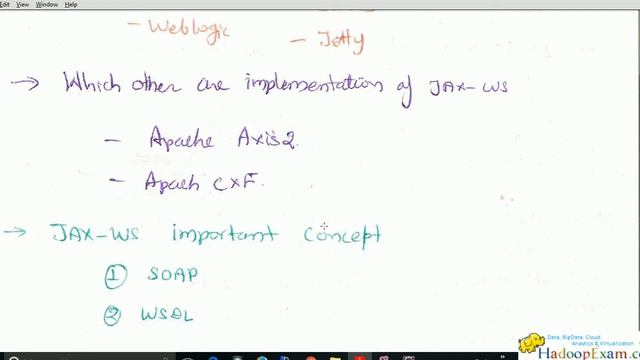 Edit View Window Help
- Weblogic - Jetty
→ Which other are implementation of JAX-WS
- Apache Axis2
- Apach CXF.
→ JAX-WS important concept
① SOAP
② WSDL
Data, BigData, Cloud
Analytics & Virtualization
HadoopExam.com